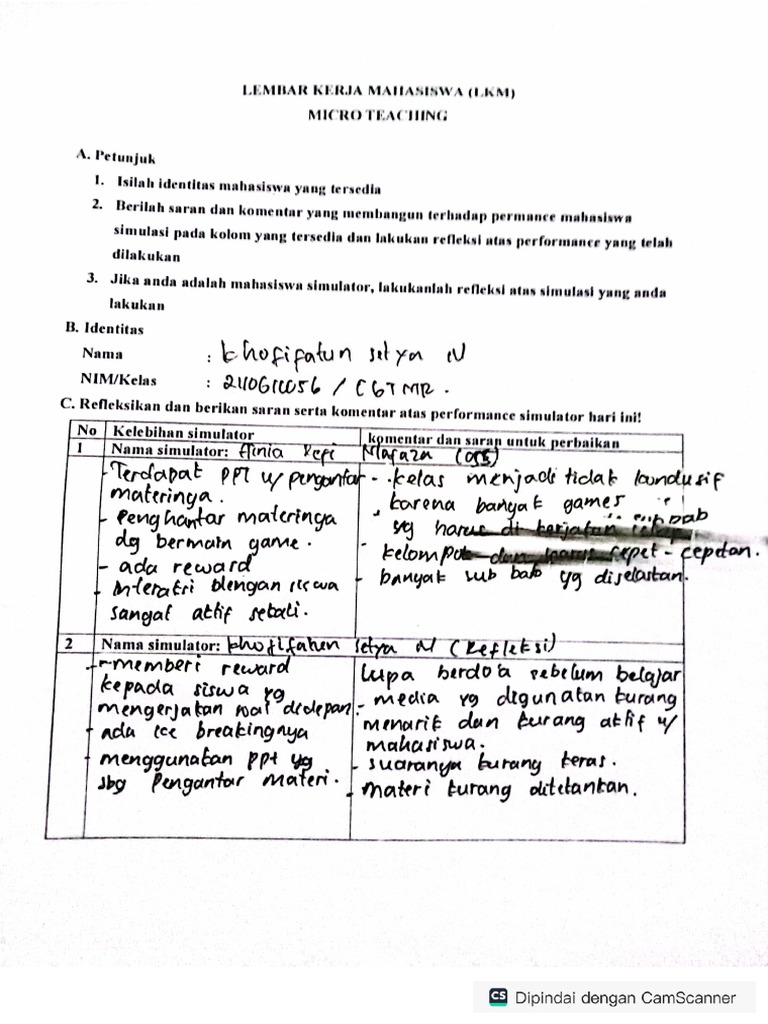 LEMBAR KERJA MAHASISWA (LKM)
MICRO TEACHING
A. Petunjuk
1. Isilah identitas mahasiswa yang tersedia
2. Berilah saran dan komentar yang membangun terhadap permance mahasiswa
simulasi pada kolom yang tersedia dan lakukan refleksi atas performance yang telah
dilakukan
3. Jika anda adalah mahasiswa simulator, lakukanlah refleksi atas simulasi yang anda
lakukan
B. Identitas
Nama : khofifatun setya N
NIM/Kelas :
C. Refleksikan dan berikan saran serta komentar atas performance simulator hari ini!
No Kelebihan simulator komentar dan saran untuk perbaikan
1 Nama simulator:
- Terdapat PPT u/ pengantar
materinya.
- Penghantar materinya
dg bermain game.
- ada reward
- siswa
sangat aktif sekali.
- kelas menjadi tidak kundusif
karena banyak games
yg harus di kerjakan
kelompok cepet - cepetan.
- banyak sub bab yg dijelaskan.
2 Nama simulator: khofifatun setya N (Refleksi)
- memberi reward
kepada siswa yg
mengerjakan soal didepan.
- ada ice breakingnya
- menggunakan ppt yg
sbg Pengantar materi.
Lupa berdo'a sebelum belajar
- media yg digunakan kurang
menarik dan kurang aktif u/
mahasiswa.
- suaranya kurang keras.
- materi kurang ditekankan.
CS Dipindai dengan CamScanner